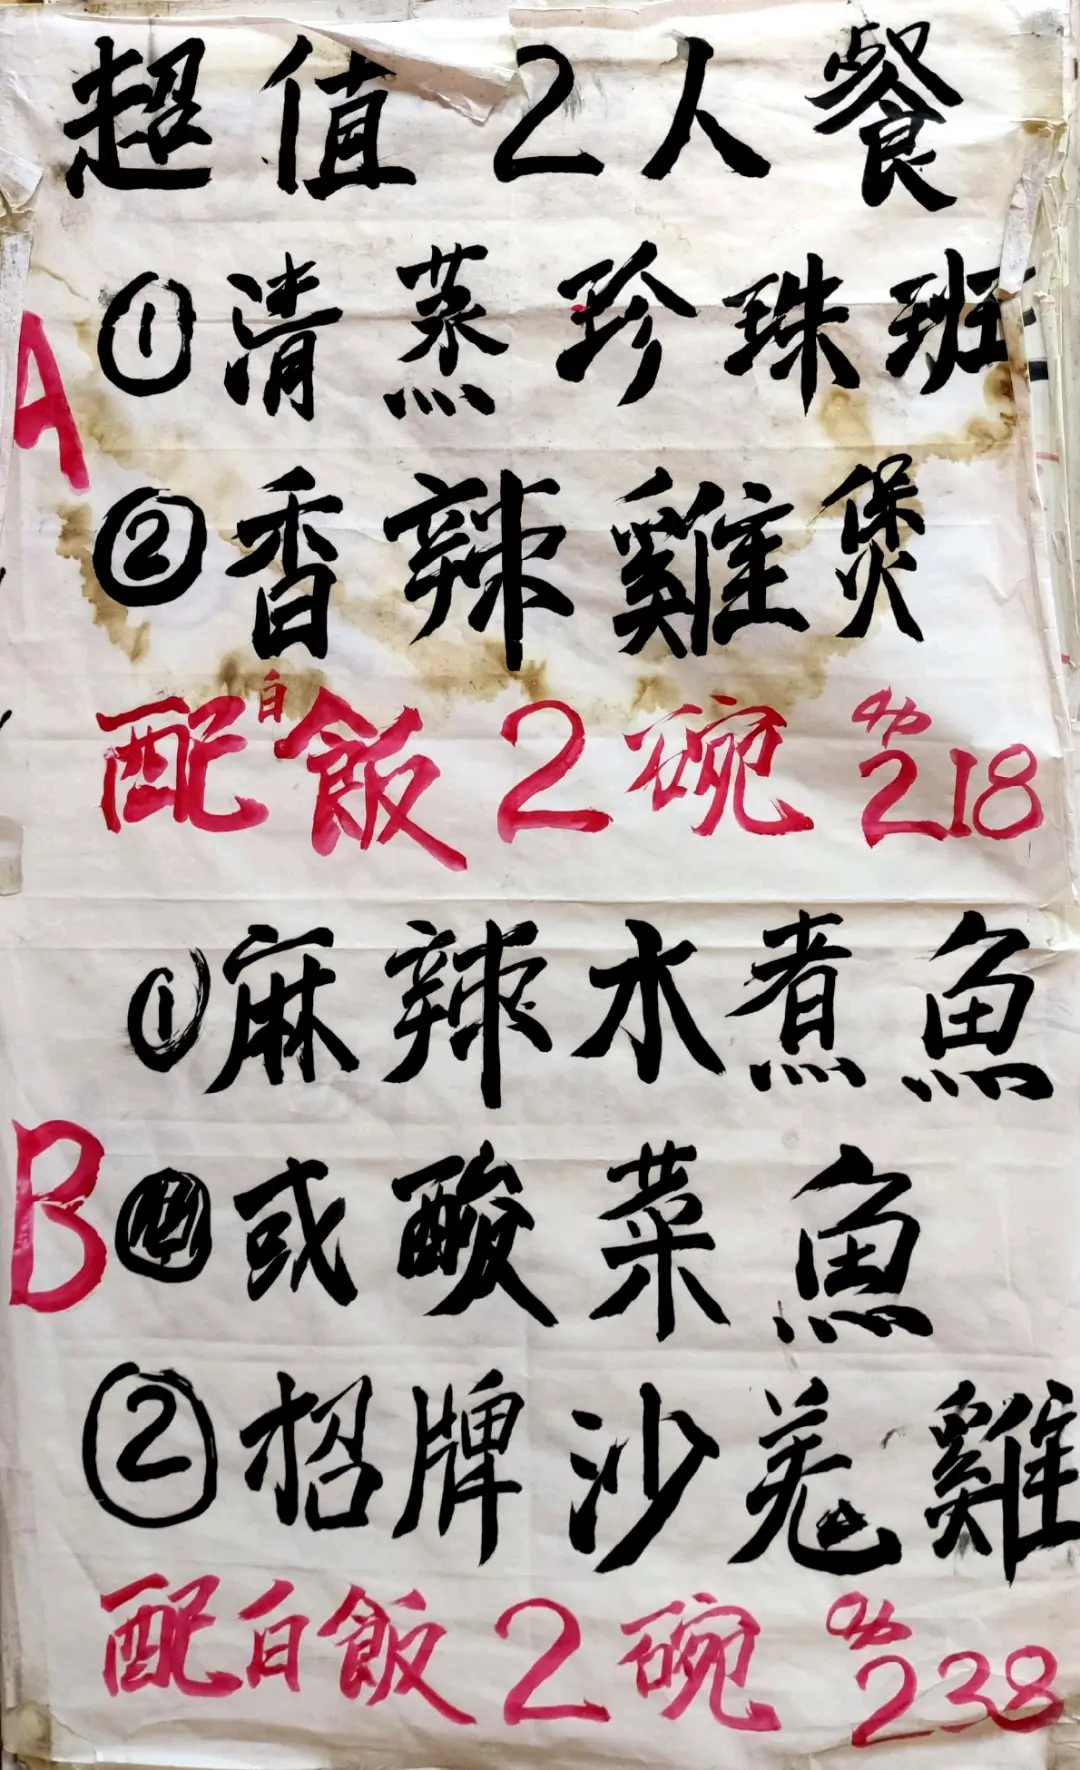 超值2人餐
A
①清蒸珍珠班
②香辣雞煲
配白飯2碗 $218
B
①麻辣水煮魚
或酸菜魚
②招牌沙羌雞
配白飯2碗 $238